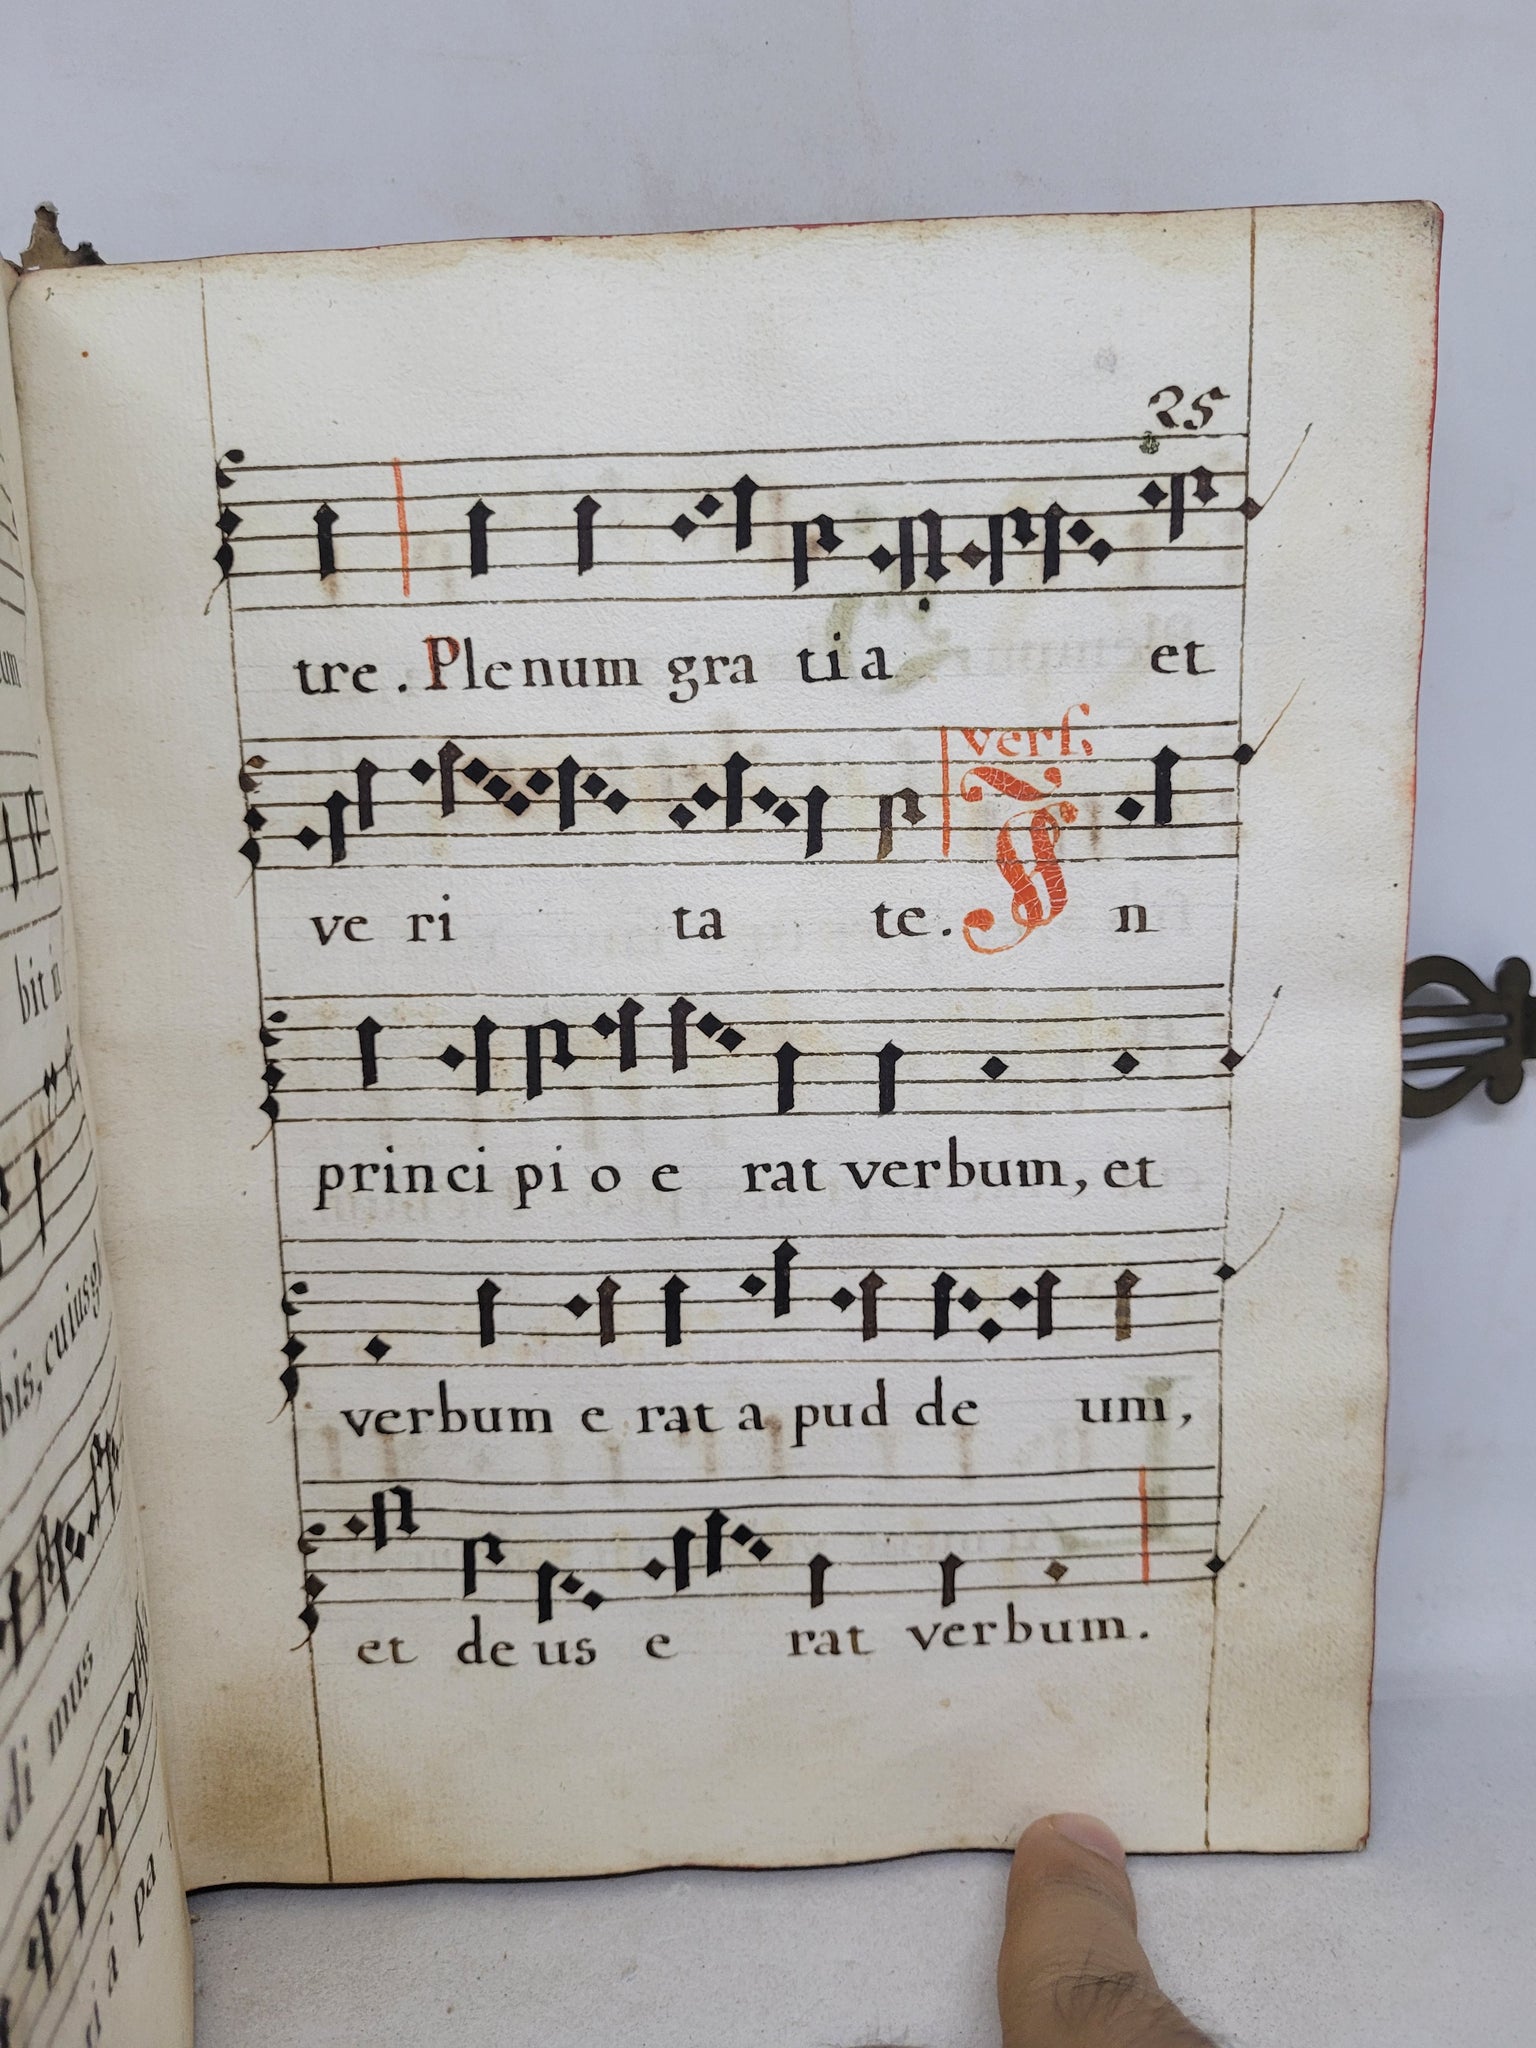 25
tre. Plenum gra tia et
ve ri ta te. vers. In
principio e rat verbum, et
verbum e rat a pud de um,
et de us e rat verbum.
bit in
bis, cuius gl
di mus
a pa